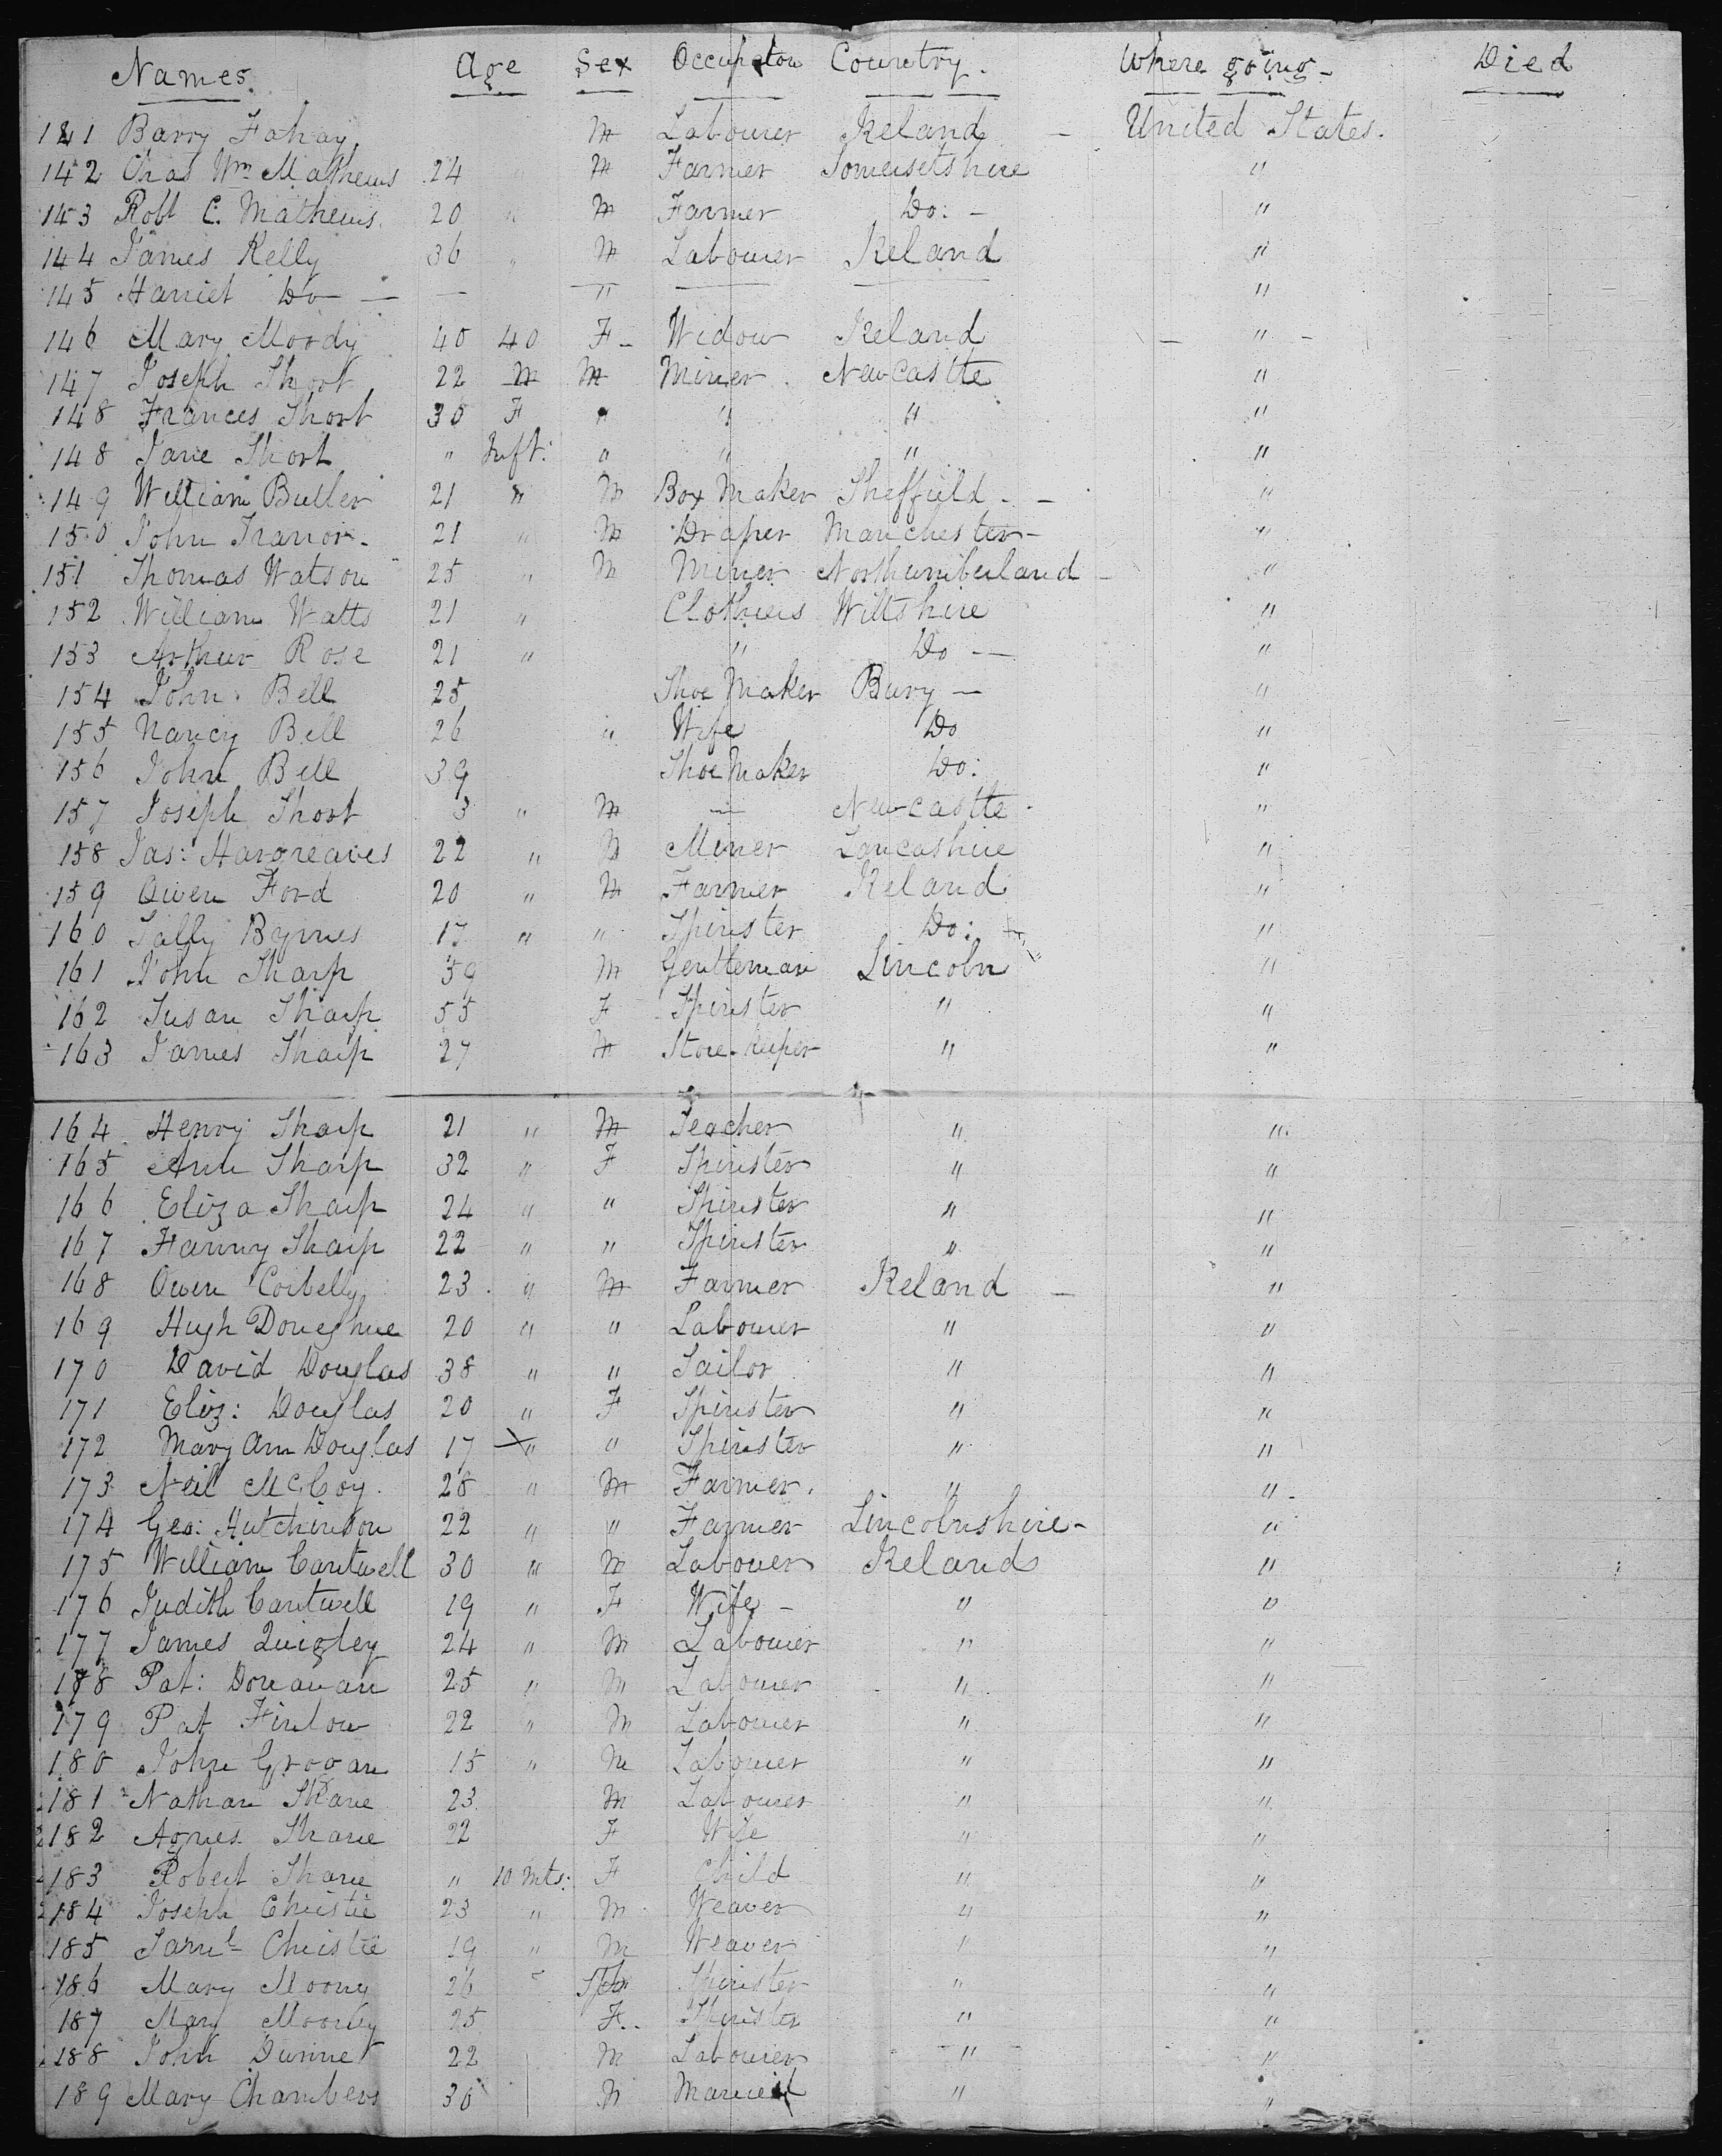 Names. Age Sex Occupation Country. Where going - Died
141 Barry Fahay M Labourer Ireland - United States.
142 Chas Wm Mathews 24 " M Farmer Somersetshire "
143 Robt C. Mathews. 20 " M Farmer Do: - "
144 James Kelly 36 " M Labourer Ireland "
145 Harriet Do - - — " — — "
146 Mary Moody 40 40 F - Widow Ireland - " -
147 Joseph Short 22 M M Miner. NewCastle "
148 Frances Short 30 F " " " "
148 Jane Short " Inft: " " " "
149 William Butler 21 " M Box Maker Sheffield - - "
150 John Tranor - 21 " M Draper Manchester - "
151 Thomas Watson 25 " M Miner Northumberland - "
152 William Watts 21 " Clothiers Wiltshire "
153 Arthur Rose 21 " " Do - "
154 John Bell 25 Shoe Maker Bury - "
155 Nancy Bell 26 " Wife Do "
156 John Bell 39 Shoe Maker Do: "
157 Joseph Short 3 " M — Newcastle - "
158 Jas: Hargreaves 22 " M Miner Lancashire "
159 Owen Ford 20 " M Farmer Ireland "
160 Sally Byrnes 17 " " Spinster Do: "
161 John Sharp 59 M Gentleman Lincoln "
162 Susan Sharp 55 F Spinster " "
163 James Sharp 27 M Store-keeper " "
164 Henry Sharp 21 " M Teacher " "
165 Ann Sharp 32 " F Spinster " "
166 Eliza Sharp 24 " " Spinster " "
167 Fanny Sharp 22 " " Spinster " "
168 Owen Corbelly 23 " M Farmer Ireland - "
169 Hugh Doneghue 20 " " Labourer " "
170 David Douglas 38 " " Tailor " "
171 Eliz: Douglas 20 " F Spinster " "
172 Mary Ann Douglas 17 X " " Spinster " "
173 Neil McCoy. 28 " M Farmer. " " -
174 Geo: Hutchinson 22 " " Farmer Lincolnshire - "
175 William Cantwell 30 " M Labourer Ireland "
176 Judith Cantwell 19 " F Wife - " "
177 James Quigley 24 " M Labourer " "
178 Pat: Donavan 25 " M Labourer " "
179 Pat Finlow 22 " M Labourer " "
180 John Grovan 15 " M Labourer " "
181 Nathan Shane 23 M Labourer " "
182 Agnes Shane 22 F Wife " "
183 Robert Shane " 10 Mts: F Child " "
184 Joseph Christie 23 " M Weaver " "
185 Saml Christie 19 " M Weaver " "
186 Mary Moony 26 " Spinster " "
187 Mary Moorley 25 F.. Spinster " "
188 John Dunne 22 M Labourer " "
189 Mary Chambers 30 M Married " "